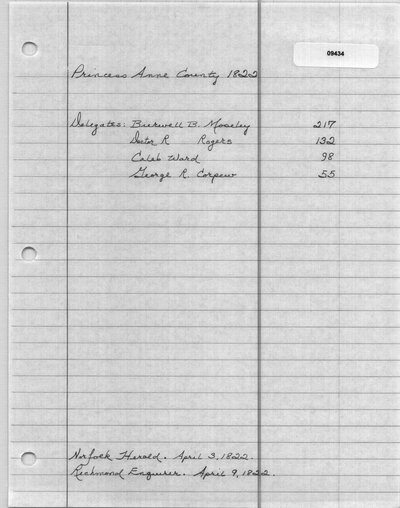 09434
Princess Anne County 1822
Delegates: Burwell B. Moseley 217
Doctor R Rogers 132
Caleb Ward 98
George R. Corprew 55
Norfolk Herald. April 3, 1822.
Richmond Enquirer. April 9, 1822.